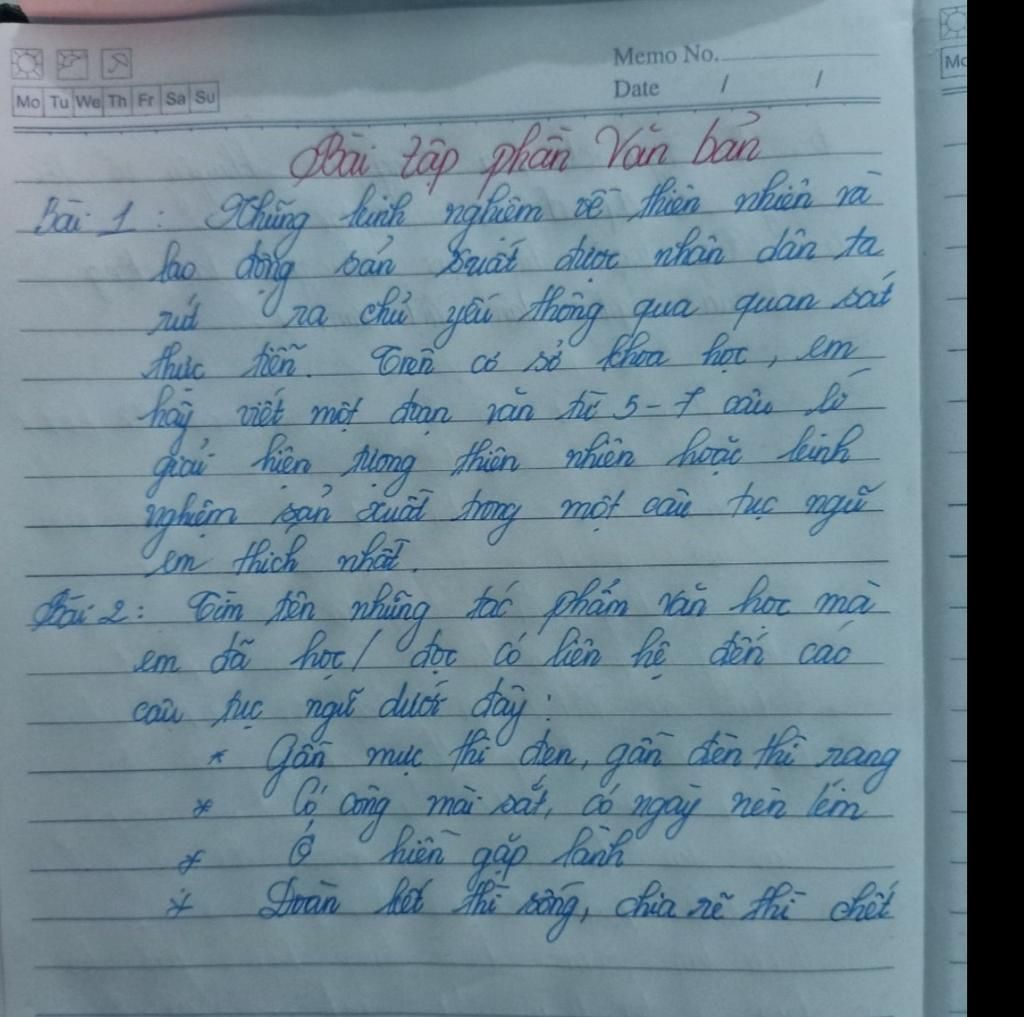 Memo No.
Date / /
Mo Tu We Th Fr Sa Su
Bài tập phần Văn bản
Bài 1: Những kinh nghiệm về thiên nhiên và
lao động sản xuất được nhân dân ta
rút ra chủ yếu thông qua quan sát
thực tiễn. Trên cơ sở khoa học, em
hãy viết một đoạn văn từ 5-7 câu lí
giải hiện tượng thiên nhiên hoặc kinh
nghiệm sản xuất trong một câu tục ngữ
em thích nhất.
Bài 2: Tìm tên những tác phẩm văn học mà
em đã học/ đọc có liên hệ đến các
câu tục ngữ dưới đây:
* Gần mực thì đen, gần đèn thì rạng
* Có công mài sắt, có ngày nên kim
* Ở hiền gặp lành
* Đoàn kết thì sống, chia rẽ thì chết